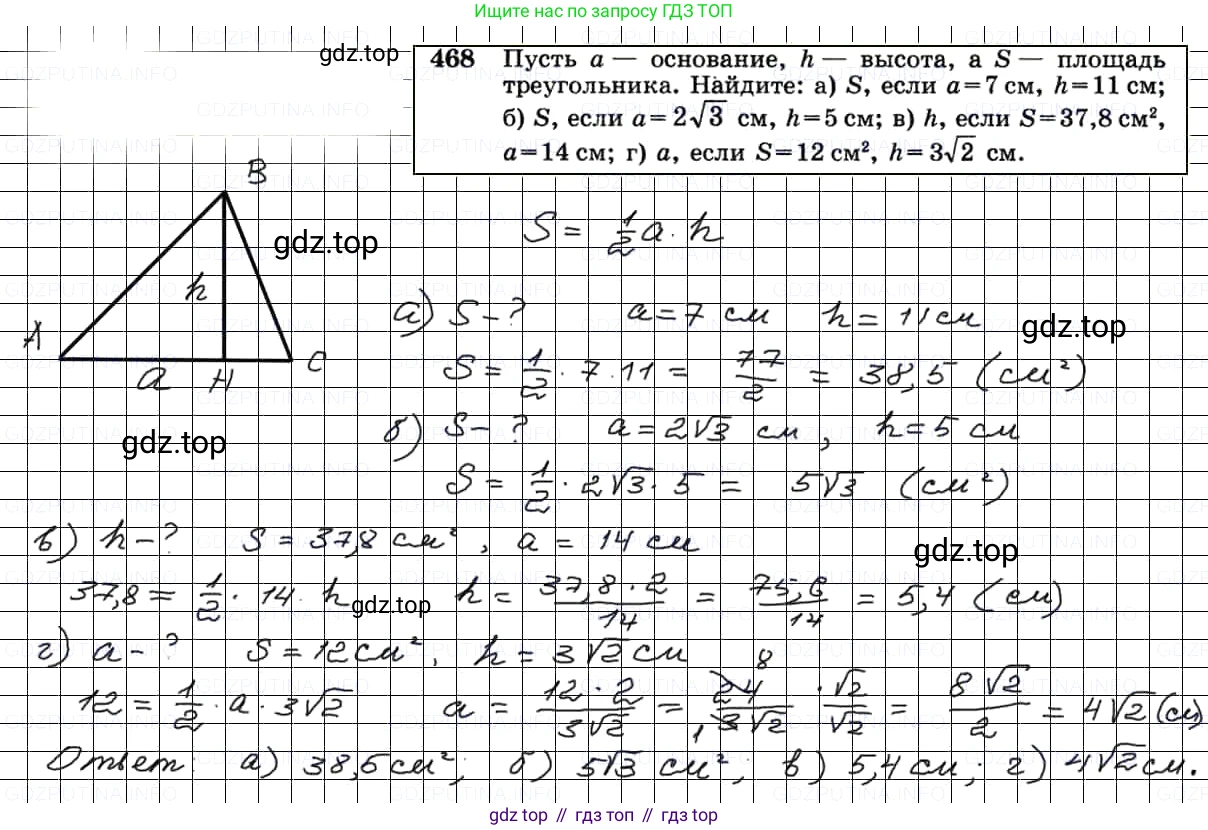 Ищите нас по запросу ГДЗ ТОП
gdz.top
468 Пусть a — основание, h — высота, а S — площадь
треугольника. Найдите: а) S, если a = 7 см, h = 11 см;
б) S, если a = 2√3 см, h = 5 см; в) h, если S = 37,8 см²,
a = 14 см; г) a, если S = 12 см², h = 3√2 см.
B
gdz.top
h
A
C
a H
gdz.top
S = 1/2 a · h
а) S - ? a = 7 см h = 11 см
gdz.top
S = 1/2 · 7 · 11 = 77/2 = 38,5 (см²)
б) S - ? a = 2√3 см, h = 5 см
S = 1/2 · 2√3 · 5 = 5√3 (см²)
в) h - ? S = 37,8 см², a = 14 см
gdz.top
37,8 = 1/2 · 14 · h h = 37,8 · 2/14 = 75,6/14 = 5,4 (см)
gdz.top
г) a - ? S = 12 см², h = 3√2 см
12 = 1/2 · a · 3√2 a = 12 · 2/3√2 = 24/3√2 · √2/√2 = 8√2/2 = 4√2 (см)
8
1
Ответ: а) 38,5 см²; б) 5√3 см²; в) 5,4 см, г) 4√2 см.
gdz.top // гдз топ // гдз.top